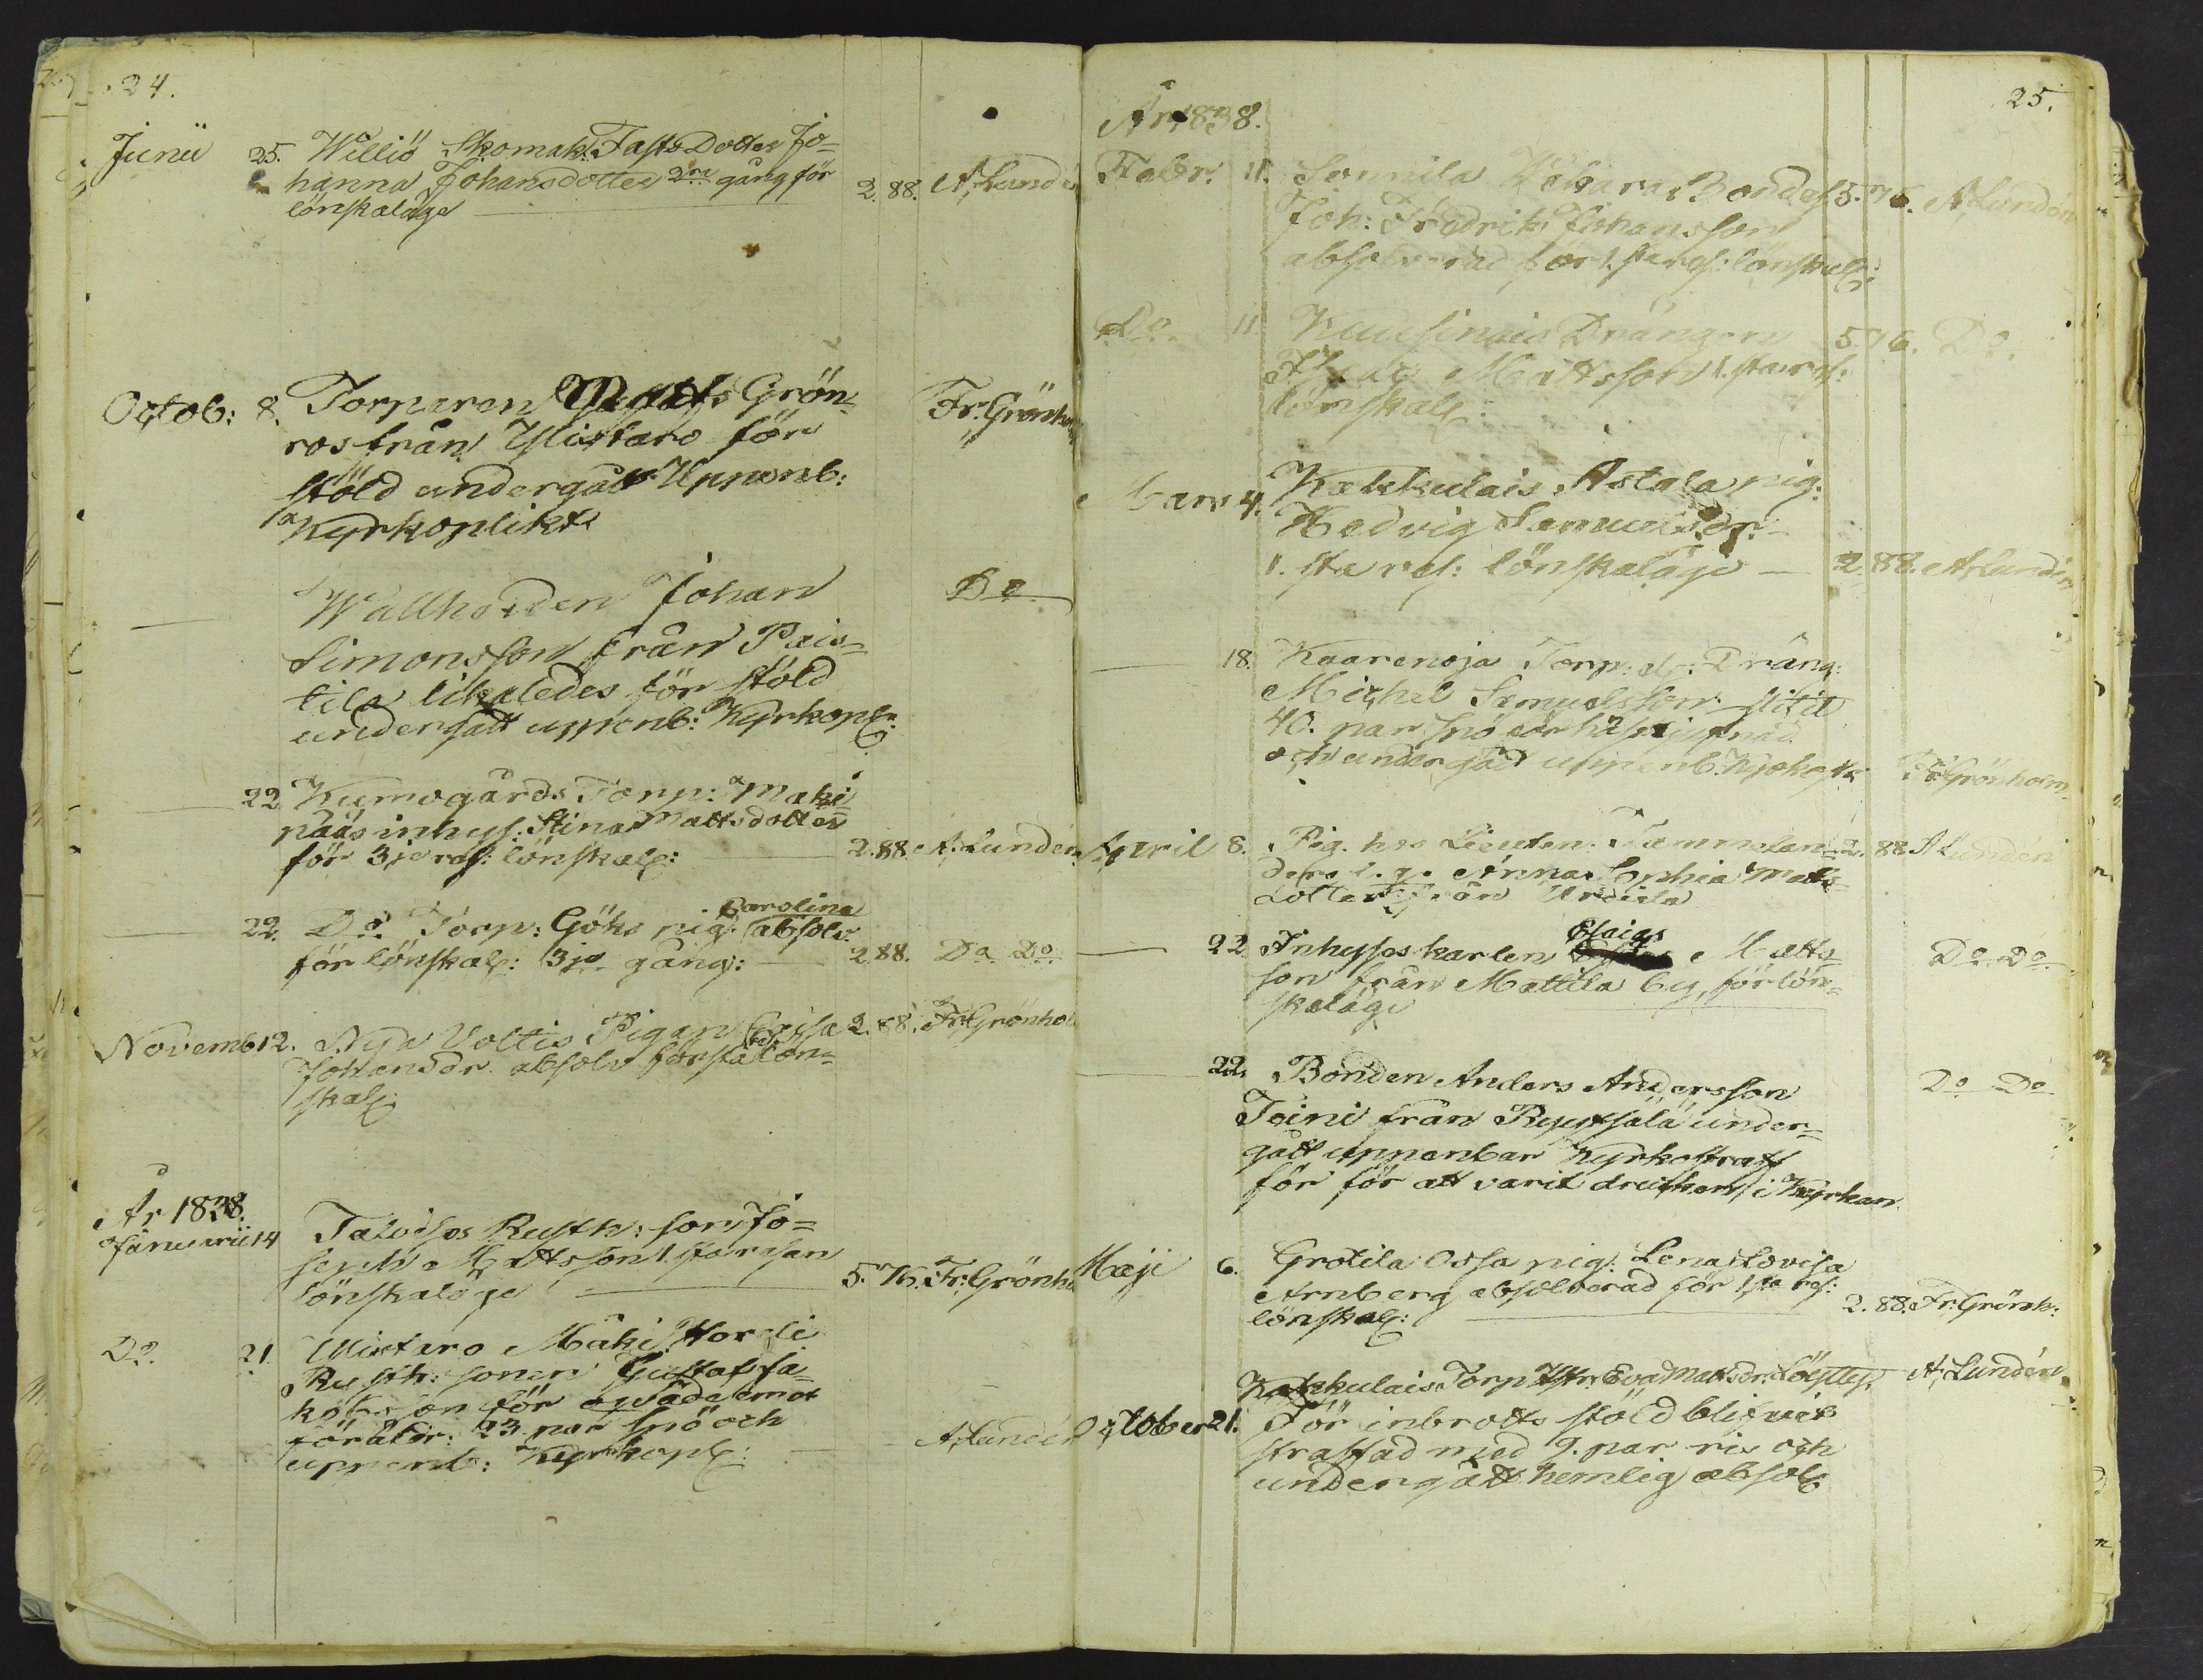 24.
Junii 25. Williö Skomak: Fasts Dotter Jo=
hanna Johansdotter 2dra gång för
lönskaläge 2. 88. A, Lundén
Octob: 8. Torparen Matts Grön=
ros från Ylistaro för
stöld undergått Uppenb:
Kyrkoplikt Fr. Grönholm
Wallherden Johan
Simonsson från Pais=
tila likaledes för stöld
undergått uppenb: Kyrkopl: Do
22. Kumogårds Torp: Maki
pääs inhys: Stina Mattsdotter
för 3je res: lönskal: 2. 88. A, Lundén
22. Do Torp: Göks pig: Carolina absolv:
för lönskal: 3je gång: 2 88. Do Do
Novemb 12. Nya Voltis Pigan Caisa
Johansdr absolv första lön=
skal: 2. 88. Fr. Grönholm
År 1838.
Januarii 14 Talvises Rusth: son Jo=
seph Mattsson 1. sta resan
lönskaläge 5. 76. Fr: Grönh
Do. 21. Ylistaro Mäki Hordi
Rusth: sonen Gustaf Ja=
kobsson för ovåda emot
föräldr: 23. par spö och
uppenb: Kyrkopl: A, Lundén
25.
År 1838.
Febr. 11. Sonnila Bondes.
Joh: Fredrik Johansson
absolverad för 1. sta res: lönskal: 5. 76. A Lundén
Do. 11. Drängen
Isaac Mattsson 1. sta res:
lönskal: 5 76. Do.
Mars 4. Kakkulais Astala pig.
Hedvig Samuelsdr:
1. sta res: lönskaläge 2. 88. A, Lundén
18. Kaarenoja Torp. Dräng:
Michel Samuelsson slitit
40. par spö för
och undergåd uppenb: Kyrkopl: Fr: Grönholm
April 8. Pig. hos Lieuten. Tammelan=
ders Anna Sophia Matts
dotter från Urdila 2. 88. A Lundén
22 Inhyses karlen Esaias Matts
son från Mattila by, för lön=
skaläge Do Do
22. Bonden Anders Andersson
Toini från Ryytsälä under=
gått uppenbar Kyrkostraff
för för att varit drucken i Kyrkan. Do Do
Maji 6. Grotila Ossa pig: Lena Lovisa
Arnberg absolverad för 1sta res:
lönskal: 2. 88. Fr: Grönh:
Kakkulais Torp Eva Mattsdr A, Lundén
October 21. För inbrotts stöld blifvit
straffad med 9. par ris och
undergått hemlig absol: